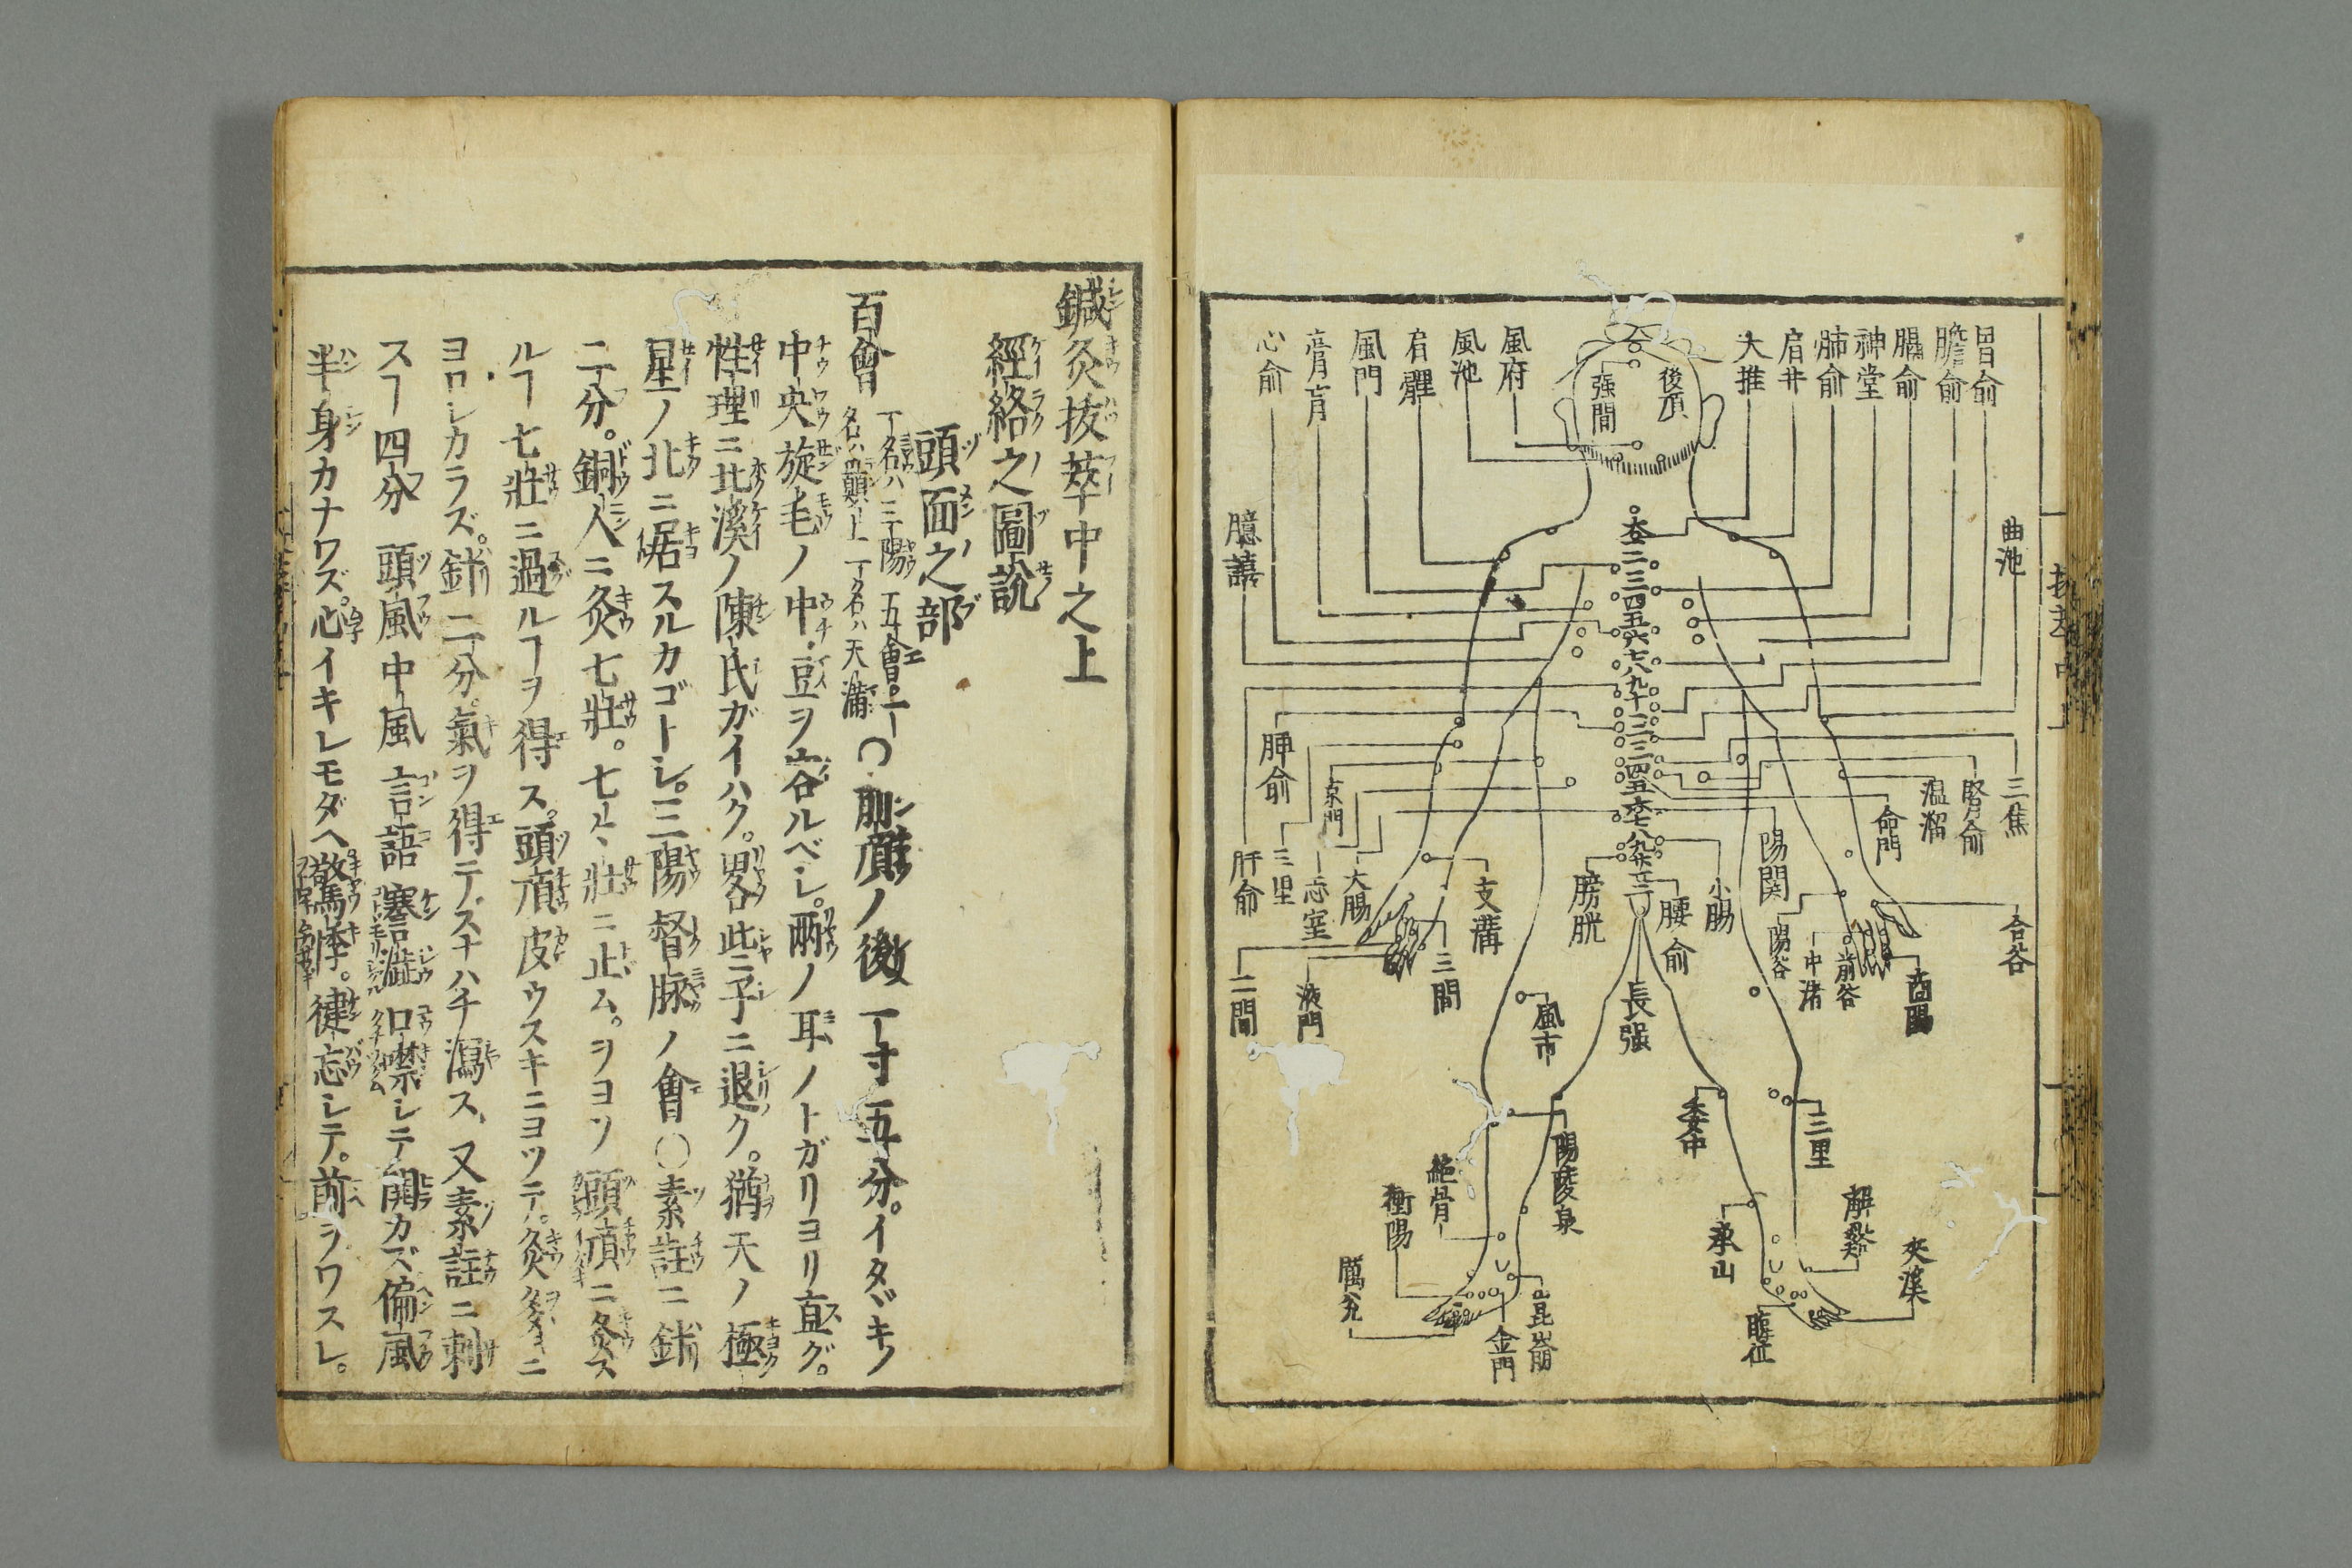 後頂
强間
大推
肩井
肺俞
神堂
膈俞
膽俞
胃俞
風府
風池
肩髃
風門
膏肓
心俞
曲池
臆譆
脾俞
京門
肝俞
三里
志室
大腸
支溝
膀胱
腰俞
小腸
陽関
命門
温溜
腎俞
三焦
合谷
陽谷
中渚
前谷
商陽
二間
液門
三間
風市
長强
委中
三里
陽陵泉
絶骨
衝陽
厲兌
承山
解谿
夾溪
臨泣
崑崙
金門
鍼灸抜萃中之上
經絡之圖說
頭面之部
百會 一名ハ三陽五會。一名ハ巓上一名ハ天滿
〇前頂ノ後一寸五分。イタヾキノ
中央旋毛ノ中。豆ヲ容ルベシ。兩ノ耳ノトガリヨリ直グ。
性理ニ北溪ノ陳氏ガイハク。畧此ニ子ニ退ク。猶天ノ極
星ノ北ニ居スルカゴトシ。三陽督脉ノ會〇素註ニ針
二分。銅人ニ灸七壯。七々壯ニ止ム。ヲヨソ頭頂ニ灸ス
ルヿ七壯ニ過ルヿヲ得ス。頭頂皮ウスキニヨツテ。灸多ニ
ヨロシカラズ。針二分。氣ヲ得テスナハチ瀉ス、又素註ニ刺
スヿ四分 頭風中風言語謇澁口噤シテ開カズ偏風
半身カナワズ。心イキレモダヘ。驚悸。健忘シテ。前ヲワスレ。